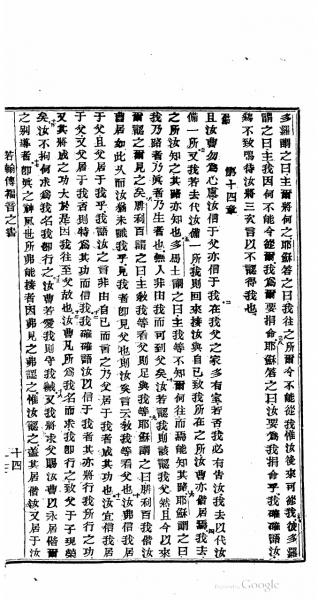 多羅謂之曰主我將何之耶穌答之曰我往之所爾今不能從我惟汝後來可從我彼多羅
謂之曰主我因何不能今從爾我爲爾要捐命耶穌答之曰汝要爲我捐命乎我確確語汝
鷄不致鳴待汝將三次言以不認得我也
第十四章
且汝曹勿爲心憂汝信于父亦信于我在我父之家多有家若否我必有告汝我去以代汝
備一所又我若去代汝備一所我則回來接汝與自己致我所在之所汝曹亦偕居焉我去
之所汝知之其路亦知也多馬士謂之曰主我等不知爾何往而焉能知其路耶穌謂之曰
我乃路者乃眞者乃生者也無人非由我而可到父矣汝若認我則該認我父然且今以來
爾認之爾見之矣腓利百謂之曰主敎我等看父則足與我等耶穌謂之曰腓利百我偕汝
曹居如此久而汝猶未識我乎見我者卽見父也則汝奚言云敎我等看父也汝弗信我居
于父且父居于我乎我所語汝之言非由自己而言之乃父居于我者成其功也汝宜信我居
于父及父居于我者則特爲其功而信我我確確語汝以信于我者其亦將行我所行之功
又其將成之功大於是因我往至父故也汝曹凡所爲我名而求我卽行之致父于子現榮
矣汝不拘何求爲我名我卽行之汝曹若愛我則守我誡又我將求父賜汝曹以永居偕爾
之別導者卽眞之神風世所弗能接者因弗見之弗認之惟汝認之蓋其居偕汝又居于汝
若翰傳福音之書
十四
Google